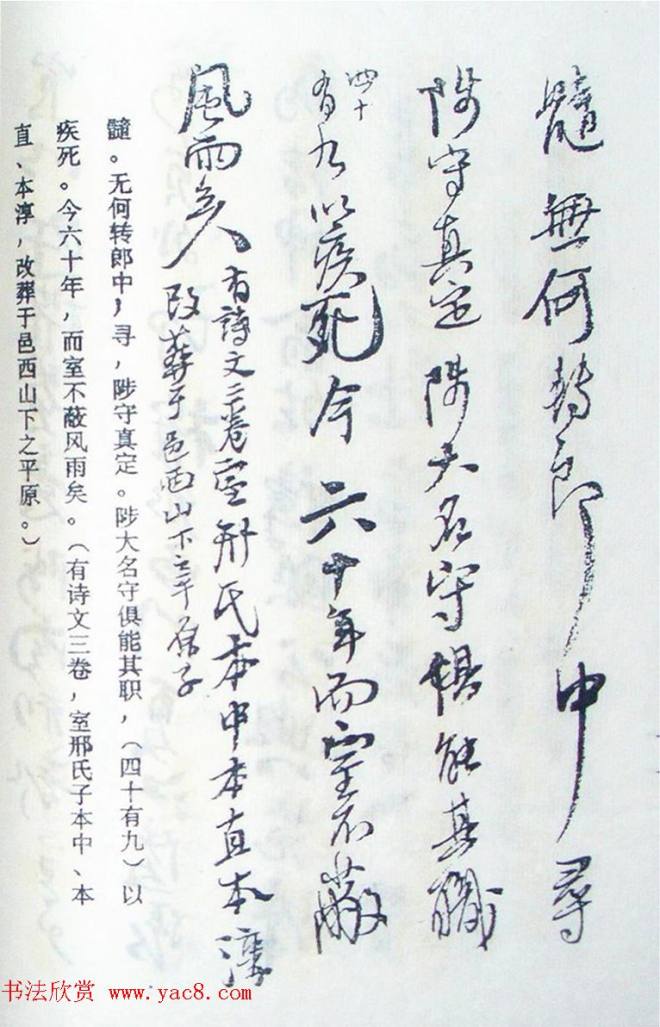 髓無何转郎中尋
陟守真定陟大名守俱能其職
四十
有九以疾死今六十年而室不蔽
風雨矣
有詩文三卷室邢氏本中本直本淳
改葬于邑西山下之平原子
髓。无何转郎中，寻，陟守真定。陟大名守俱能其职，（四十有九）以
疾死。今六十年，而室不蔽风雨矣。（有诗文三卷，室邢氏子本中、本
直、本淳，改葬于邑西山下之平原。）
书法欣赏 www.yac8.com